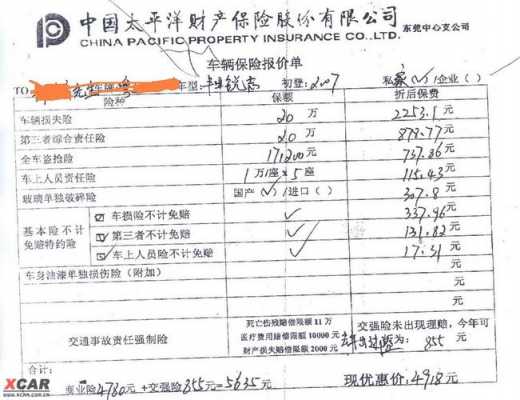 中国太平洋财产保险股份有限公司
CHINA PACIFIC PROPERTY INSURANCE CO.,LTD. 东莞中心支公司
车辆保险报价单
TO 车型: 锐志 初登: 2007 私家(√)/企业( )
险种 保额 折后保费
车辆损失险 20万 2253.1元
第三者综合责任险 20万 878.77元
全车盗抢险 171200元 737.86元
车上人员责任险 1万/座*5座 115.43元
玻璃单独破碎险 国产(√)/进口( ) 307.8元
基本险不计免赔特约险
车损险不计免赔 √ 337.96元
第三者不计免赔 √ 131.82元
车上人员险不计免赔 √ 17.31元
车身油漆单独损伤险(附加) 元
元
交通事故责任强制险
死亡伤残赔偿限额 11万
医疗费用赔偿限额 10000元
财产损失赔偿限额 2000元
交强险未出现理赔,今年可
为: 855元
合计:
商业险4780元+交强险855元=5635元 现优惠价:4918元
XCAR
WWW.XCAR.COM.CN